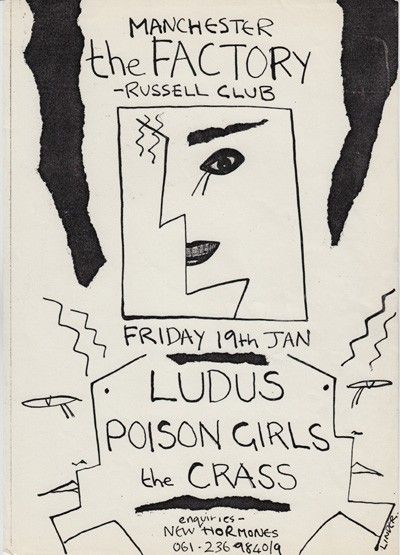 MANCHESTER
the FACTORY
-RUSSELL CLUB
FRIDAY 19th JAN
LUDUS
POISON GIRLS
the CRASS
enquiries-
NEW HORMONES
061-236 9840/9
LINDER.